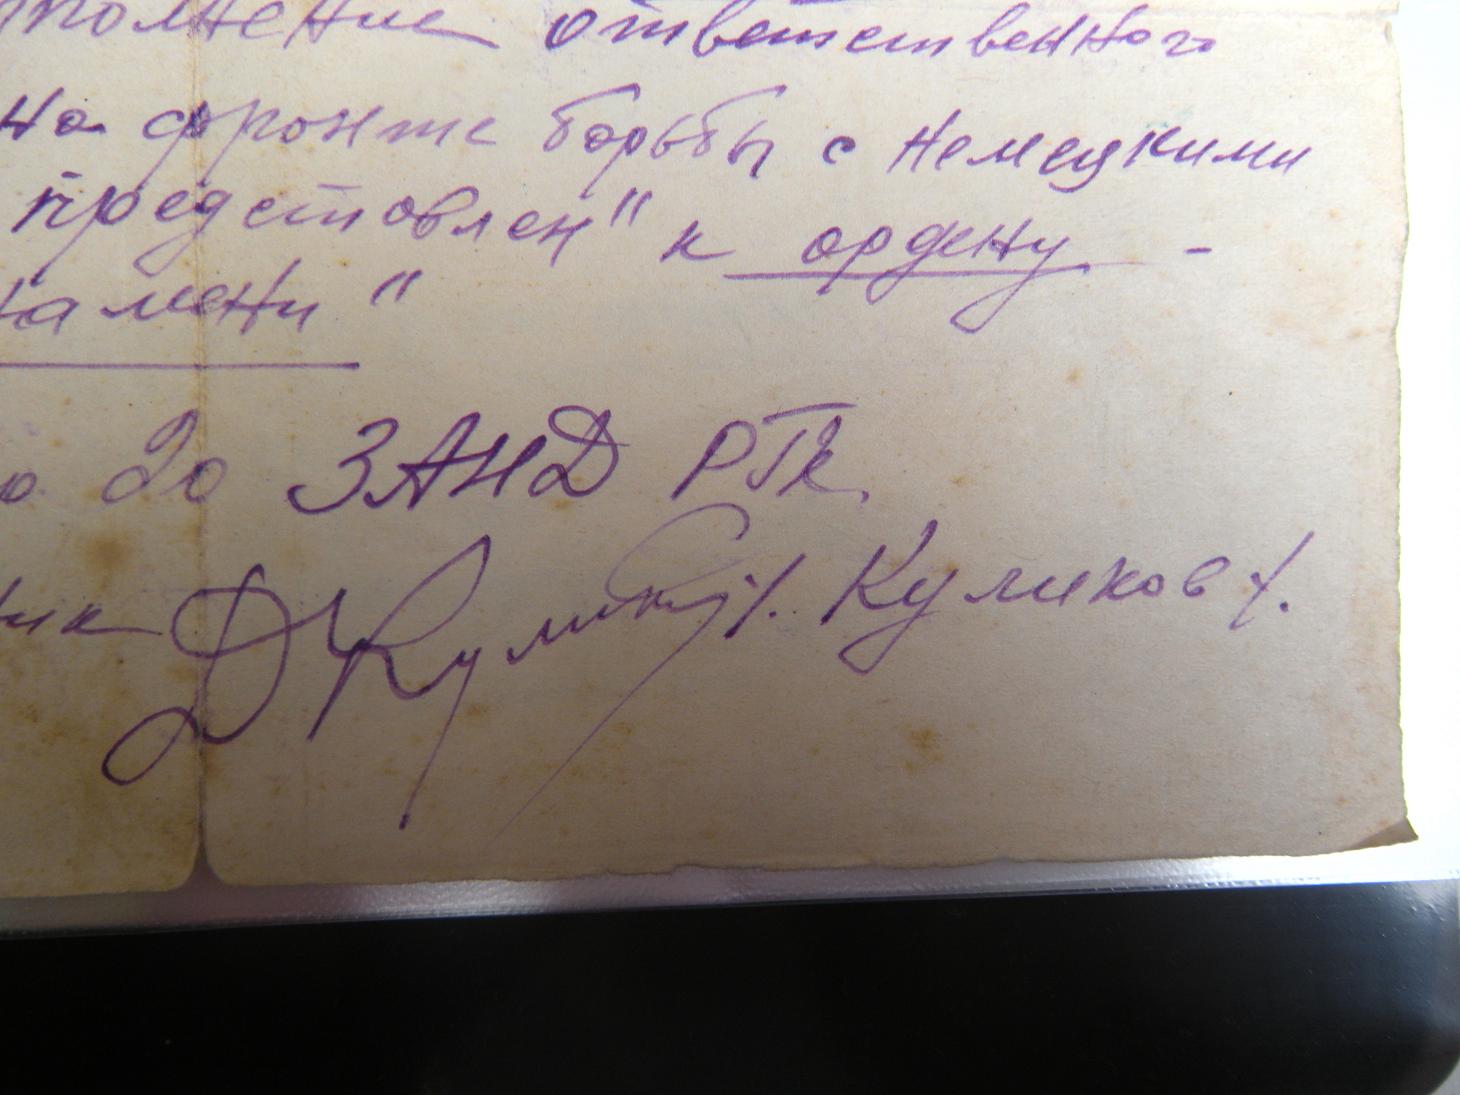 полнение ответственного
на фронте борьбы с немецкими
представлен" к ордену -
намени"
о 20 ЗАНД РГК.
ик ДКулик /. Куликов /.